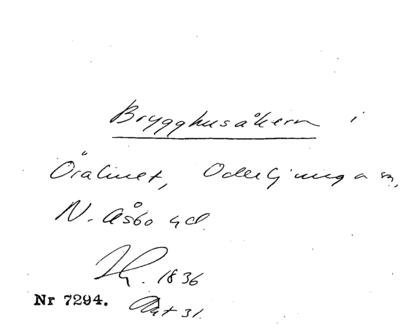 Brygghusåkern i
Öralinet, Oderljunga sn,
N. Åsbo hd.
1836
Nr 7294. Akt 31.